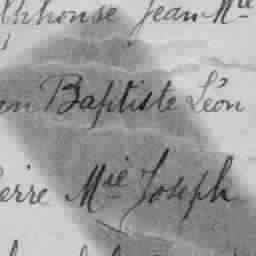 lphonse Jean Mie
an Baptiste Léon
ierre Mie Joseph